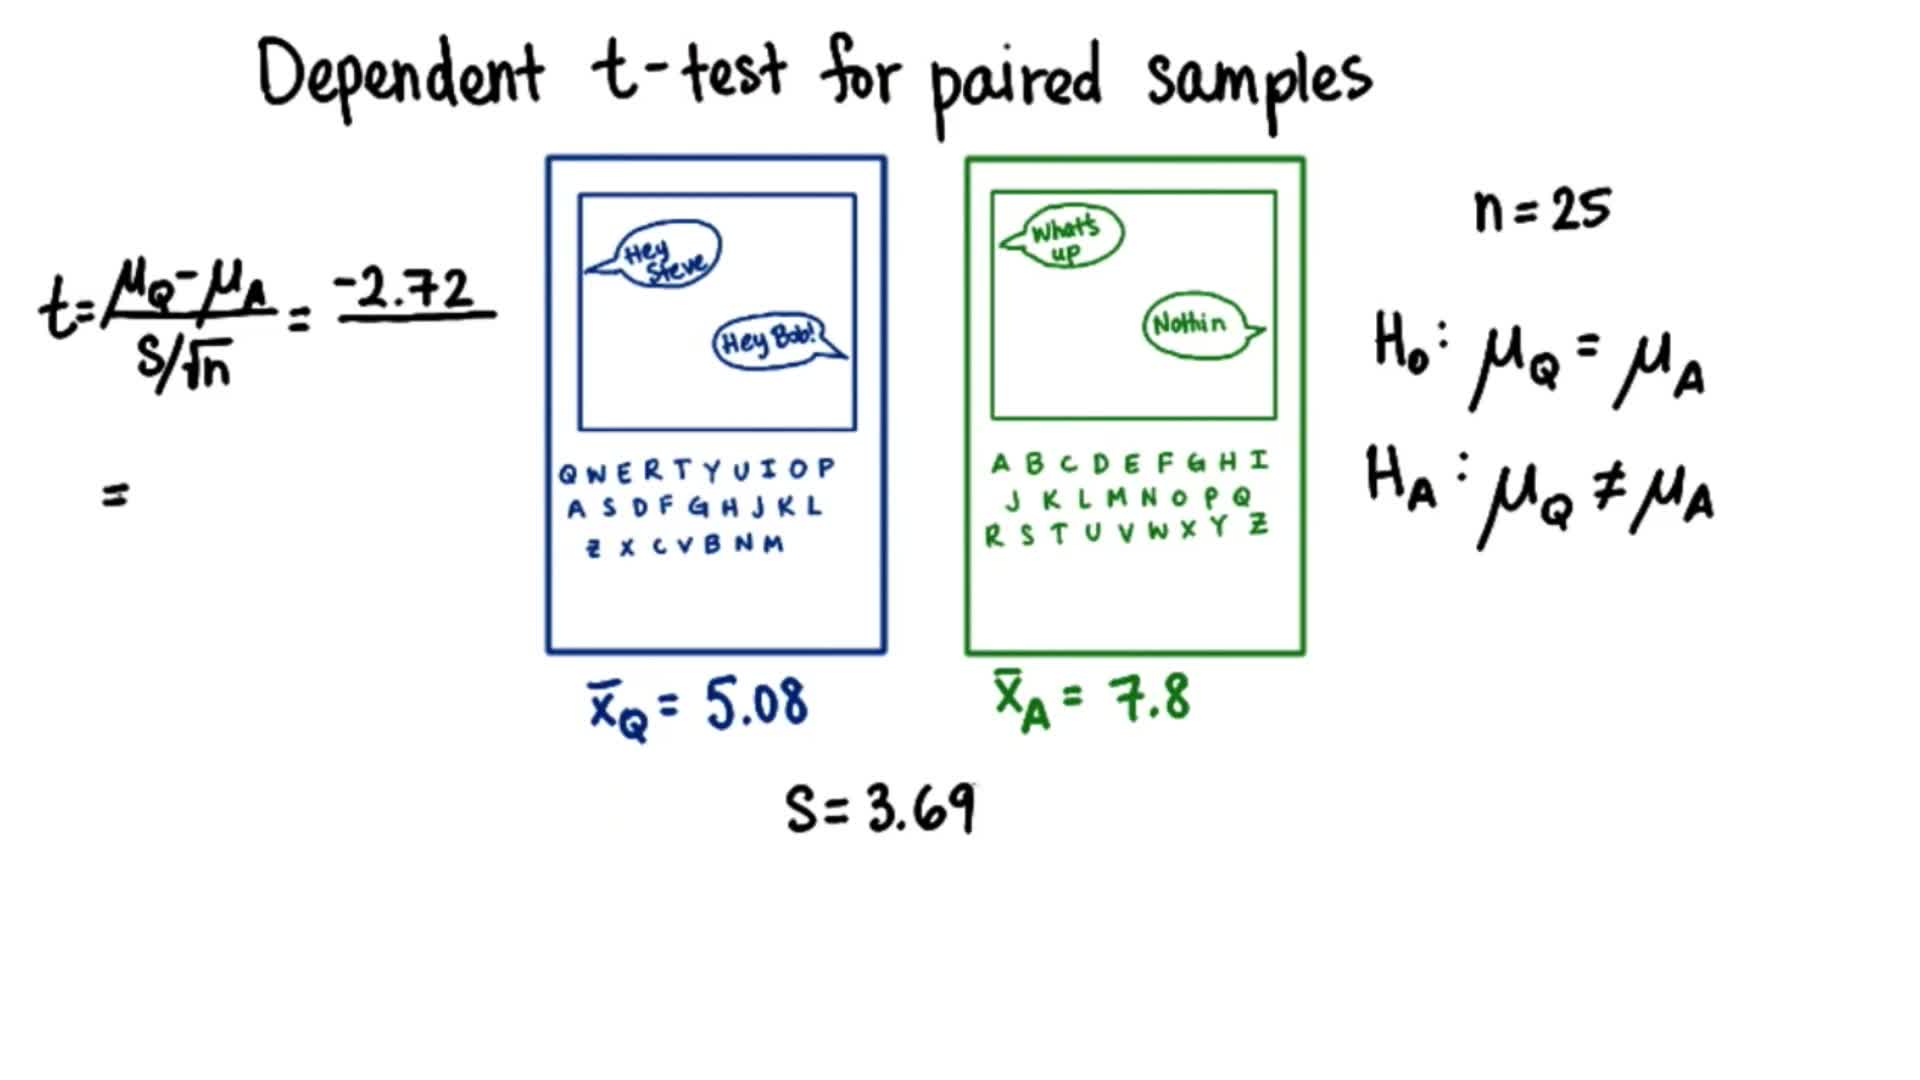 Dependent t-test for paired samples
t = μQ - μA / S/√n = -2.72
=
Hey
Steve
Hey Bob!
Q W E R T Y U I O P
A S D F G H J K L
Z X C V B N M
x̄Q = 5.08
What's
up
Nothin
A B C D E F G H I
J K L M N O P Q
R S T U V W X Y Z
x̄A = 7.8
S = 3.69
n = 25
H₀: μQ = μA
HA: μQ ≠ μA